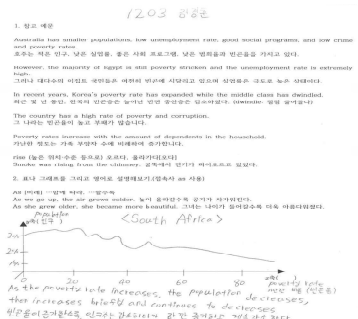 1203
1. 참고 예문
Australia has smaller population, low unemployment rate, good social programs, and low crime
and poverty rates
호주는 적은 인구, 낮은 실업률, 좋은 사회 프로그램, 낮은 범죄율과 빈곤율을 가지고 있다.
However, the majority of Egypt is still poverty stricken and the unemployment rate is extremely
high.
그러나 대다수의 이집트 국민들은 여전히 빈곤에 시달리고 있으며 실업률은 극도로 높은 상태이다.
In recent years, Korea's poverty rate has expanded while the middle class has dwindled.
최근 몇 년 동안, 한국의 빈곤층은 늘어난 반면 중산층은 감소하였다.
The country has a high rate of poverty and corruption.
그 나라는 빈곤율이 높고 부패가 많습니다.
Poverty rates increase with the amount of dependents in the household.
가난한 정도는 가족 부양자 수에 비례하여 증가합니다.
rise (높은 위치·수준 등으로) 오르다, 올라가다[오다]
Smoke was rising from the chimney. 굴뚝에서 연기가 피어오르고 있었다.
2. 표나 그래프를 그리고 영어로 설명해보기(접속사 as 사용)
As we go up, the air grows colder. 높이 올라갈수록 공기가 차가워진다.
As she grew older, she became more beautiful. 그녀는 나이가 들어갈수록 더욱 아름다워졌다.
population
<South Africa>
3m
2m
0 20 40 60 80
poverty rate
As the poverty rate increases, the population decreases,
then increases briefly and continues to decreases